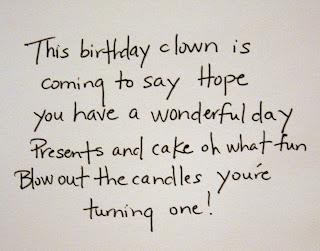 This birthday clown is
coming to say Hope
you have a wonderful day
Presents and cake oh what fun
Blow out the candles you're
turning one!